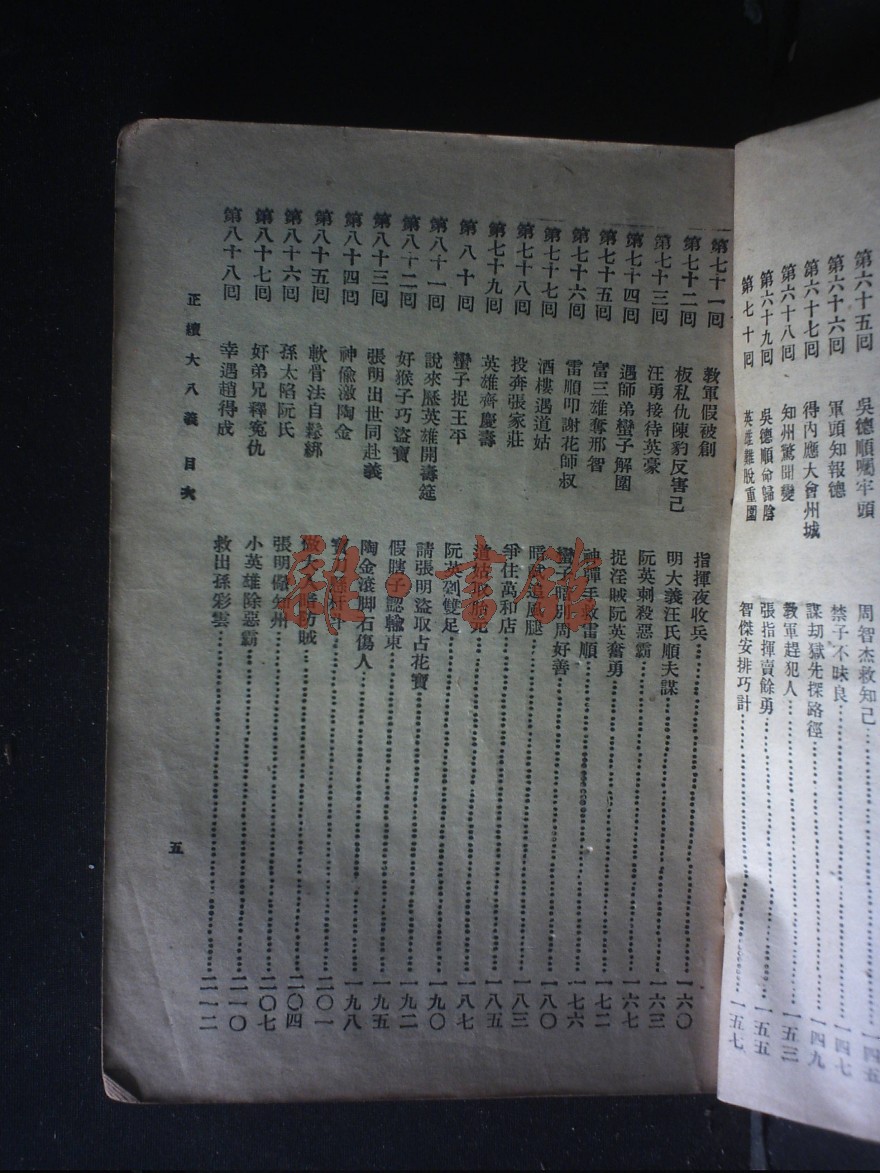 第六十五回 吳德順囑牢頭 周智杰救知己 一四五
第六十六回 軍頭知報德 禁子不昧良 一四七
第六十七回 得內應大會州城 謀劫獄先探路徑 一四九
第六十八回 知州驚聞變 教軍趕犯人 一五三
第六十九回 吳德順命歸陰 張指揮賣餘勇 一五五
第七十回 英雄難脫重圍 智傑安排巧計 一五七
第七十一回 教軍假被創 指揮夜收兵 一六〇
第七十二回 板私仇陳豹反害己 明大義汪氏順夫謀 一六三
第七十三回 汪勇接待英豪 阮英刺殺惡霸 一六七
第七十四回 遇師弟蠻子解圍 捉淫賊阮英奮勇 一七二
第七十五回 富三雄奪邢智 神彈手收雷順 一七六
第七十六回 雷順叩謝花師叔 蠻子暗別周好善 一八〇
第七十七回 酒樓遇道姑 暗試追風腿 一八三
第七十八回 投奔張家莊 爭住萬和店 一八五
第七十九回 英雄齊慶壽 道姑取胎元 一八七
第八十回 蠻子捉王平 阮英剁雙足 一九〇
第八十一回 說來歷英雄開壽筵 請張明盜取占花寶 一九二
第八十二回 好猴子巧盜寶 假瞎子認輸東 一九五
第八十三回 張明出世同赴義 陶金滾脚石傷人 一九八
第八十四回 神偸激陶金 寶刀孫狂斗 二〇一
第八十五回 軟骨法自鬆綁 做大人皆防賊 二〇四
第八十六回 孫太咯阮氏 張明儆知州 二〇七
第八十七回 好弟兄釋寃仇 小英雄除惡霸 二一〇
第八十八回 幸遇趙得成 救出孫彩雲 二一二
正續大八義 目次
五
雜·書館